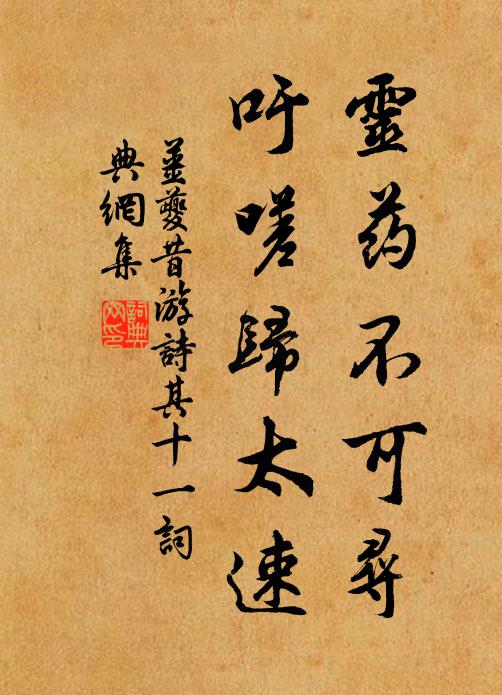 靈药不可尋
吁嗟歸太速
姜夔昔游詩其十一詞
典網集
詞典網印